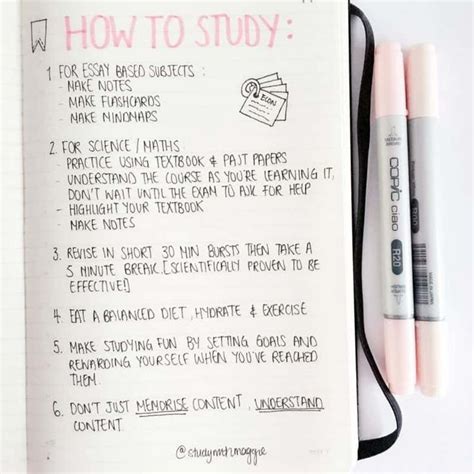 HOW TO STUDY:
1. FOR ESSAY BASED SUBJECTS:
- MAKE NOTES
- MAKE FLASHCARDS
- MAKE MINDMAPS
ECON
2. FOR SCIENCE / MATHS:
- PRACTICE USING TEXTBOOK & PAST PAPERS
- UNDERSTAND THE COURSE AS YOU'RE LEARNING IT,
DON'T WAIT UNTIL THE EXAM TO ASK FOR HELP
- HIGHLIGHT YOUR TEXTBOOK
- MAKE NOTES
3. REVISE IN SHORT 30 MIN BURSTS THEN TAKE A
5 MINUTE BREAK. [SCIENTIFICALLY PROVEN TO BE
EFFECTIVE!]
4. EAT A BALANCED DIET, HYDRATE & EXERCISE
5. MAKE STUDYING FUN BY SETTING GOALS AND
REWARDING YOURSELF WHEN YOU'VE REACHED
THEM.
6. DON'T JUST MEMORISE CONTENT, UNDERSTAND
CONTENT.
@studywithmaggie
COPIC ciao
R20